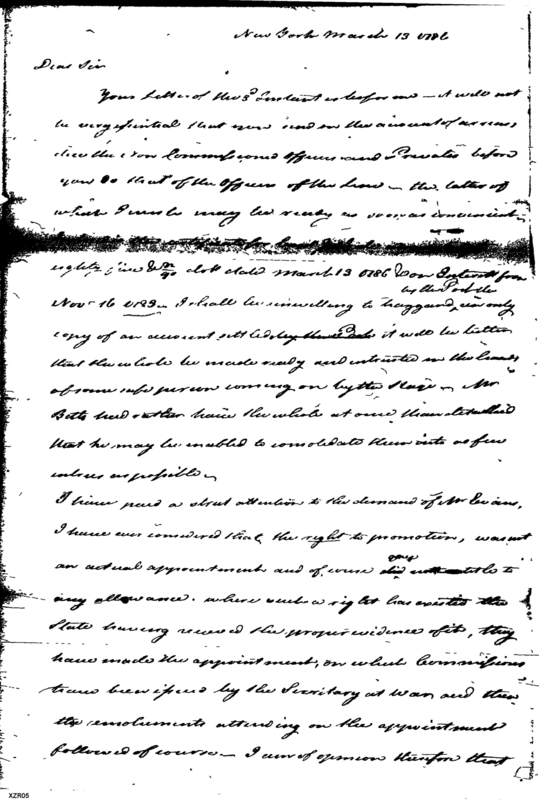 New York March 13 1786
Dear Sir
Your Letter of the 3d Instant is before me — it will not
be very essential that you send on the account of arrears
due the Non Commissioned Officers and Privates before
you do that of the Officers of the Line — the latter of
which I wish may be ready as soon as convenient
eighty five dolls dated March 13 1786 on Interest from
by the Post the
Nov 16 1783 — I shall be unwilling to haggard, an only
copy of an account settled it will be better
that the whole be made ready and intrusted in the hands
of some safe person coming on by the Stage — Mr
Betts had rather have the whole at once than detailed
that he may be enabled to consolidate them into as few
entries as possible —
I have paid a strict attention to the demand of Mr Evans,
I have ever considered that the right to promotion, was not
an actual appointment and of course to
any allowance. where such a right has existed the
State having received the proper evidence of it, they
have made the appointment, on which Commissions
have been issued by the Secretary at War and then
the emoluments attending on the appointment
followed of course — I am of opinion therefore that
XZR05